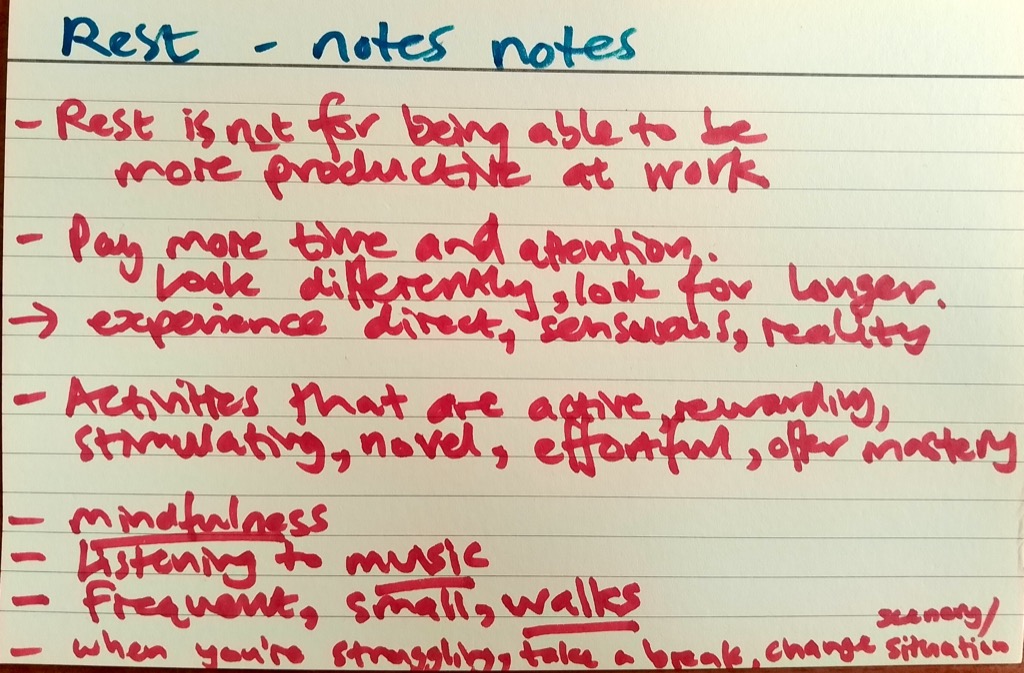 Rest - notes notes
- Rest is not for being able to be
more productive at work
- Pay more time and attention.
Look differently, look for longer.
→ experience direct, sensuous, reality
- Activities that are active, rewarding,
stimulating, novel, effortful, offer mastery
- mindfulness
- Listening to music
- frequent, small, walks
- when you're struggling, take a break, change scenery/
situation